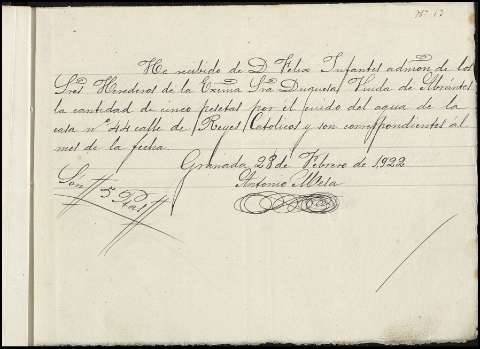 Nº 13
He recibido de D. Felix Infantes admon. de los
Sres. Herederos de la Excma Sra Duquesa Viuda de Abrantes
la cantidad de cinco pesetas por el cuido del agua de la
casa nº 44 calle de Reyes Catolicos y son correspondientes al
mes de la fecha.
Granada 28 de Febrero de 1,922
Antonio Mesa
Son 5 Ptas